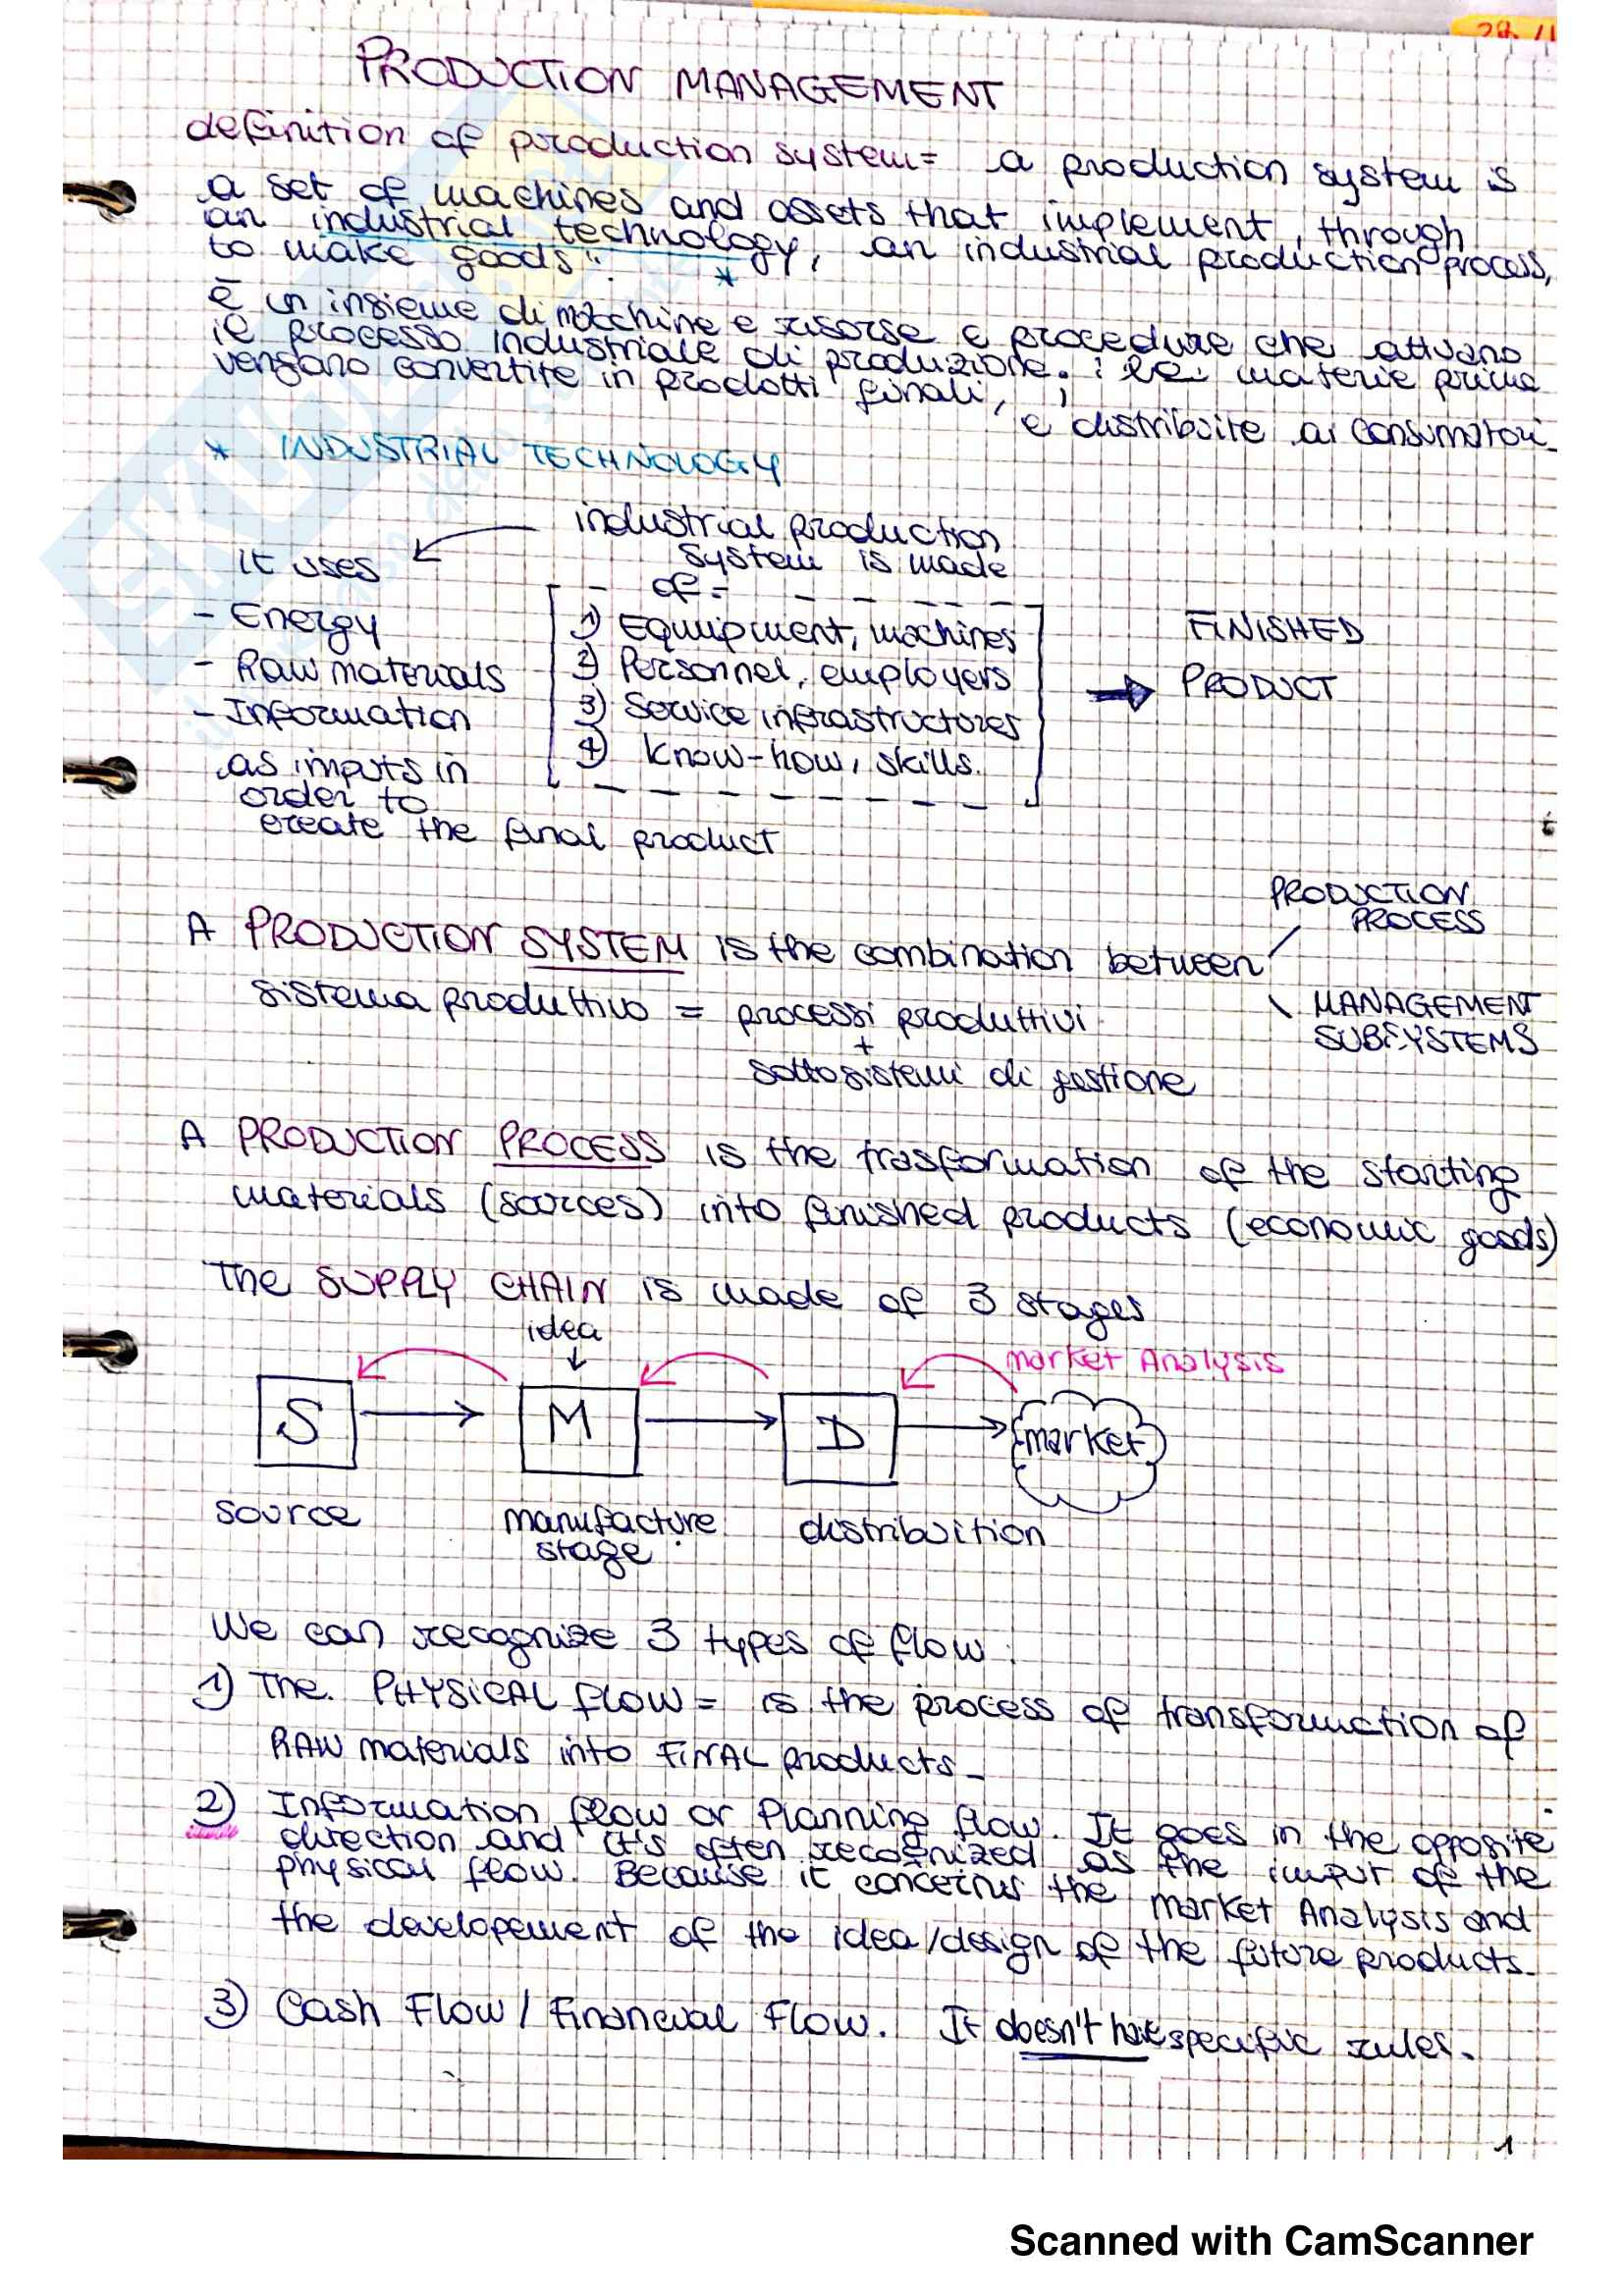 28.11
PRODUCTION MANAGEMENT
definition of production system= a production system is
a set of machines and assets that implement, through
an industrial technology, an industrial production process,
to make goods". *
È un insieme di macchine e risorse e procedure che attuano
il processo industriale di produzione. : le materie prime
vengano convertite in prodotti finali,
e distribuite ai consumatori
* INDUSTRIAL TECHNOLOGY
industrial production
system is made
of =
it uses
- Energy
- Raw materials
- Information
as imputs in
order to
create the final product
1) Equuipment, machines
2) Personnel, employers
3) Service infrastructures
4) Know-how, skills.
FINISHED
PRODUCT
PRODUCTION
PROCESS
A PRODUCTION SYSTEM is the combination between
MANAGEMENT
SUBSYSTEMS
sistema produttivo = processi produttivi
+
sottosistemi di gestione
A PRODUCTION PROCESS is the trasformation of the starting
materials (sources) into finished products (economic goods)
The SUPPLY CHAIN is made of 3 stages
idea
market Analysis
S M D market
source manufacture distribuition
stage
We can recognize 3 types of flow:
1) The PHYSICAL flow = is the process of transformation of
RAW materials into FINAL products_
2) Information flow or Planning flow. It goes in the opposite
direction and it's often recognized as the imput of the
physical flow. Because it concerns the market Analysis and
the developement of the idea/design of the future products_
3) Cash Flow / Financial Flow. It doesn't have specific rules.
1
Scanned with CamScanner